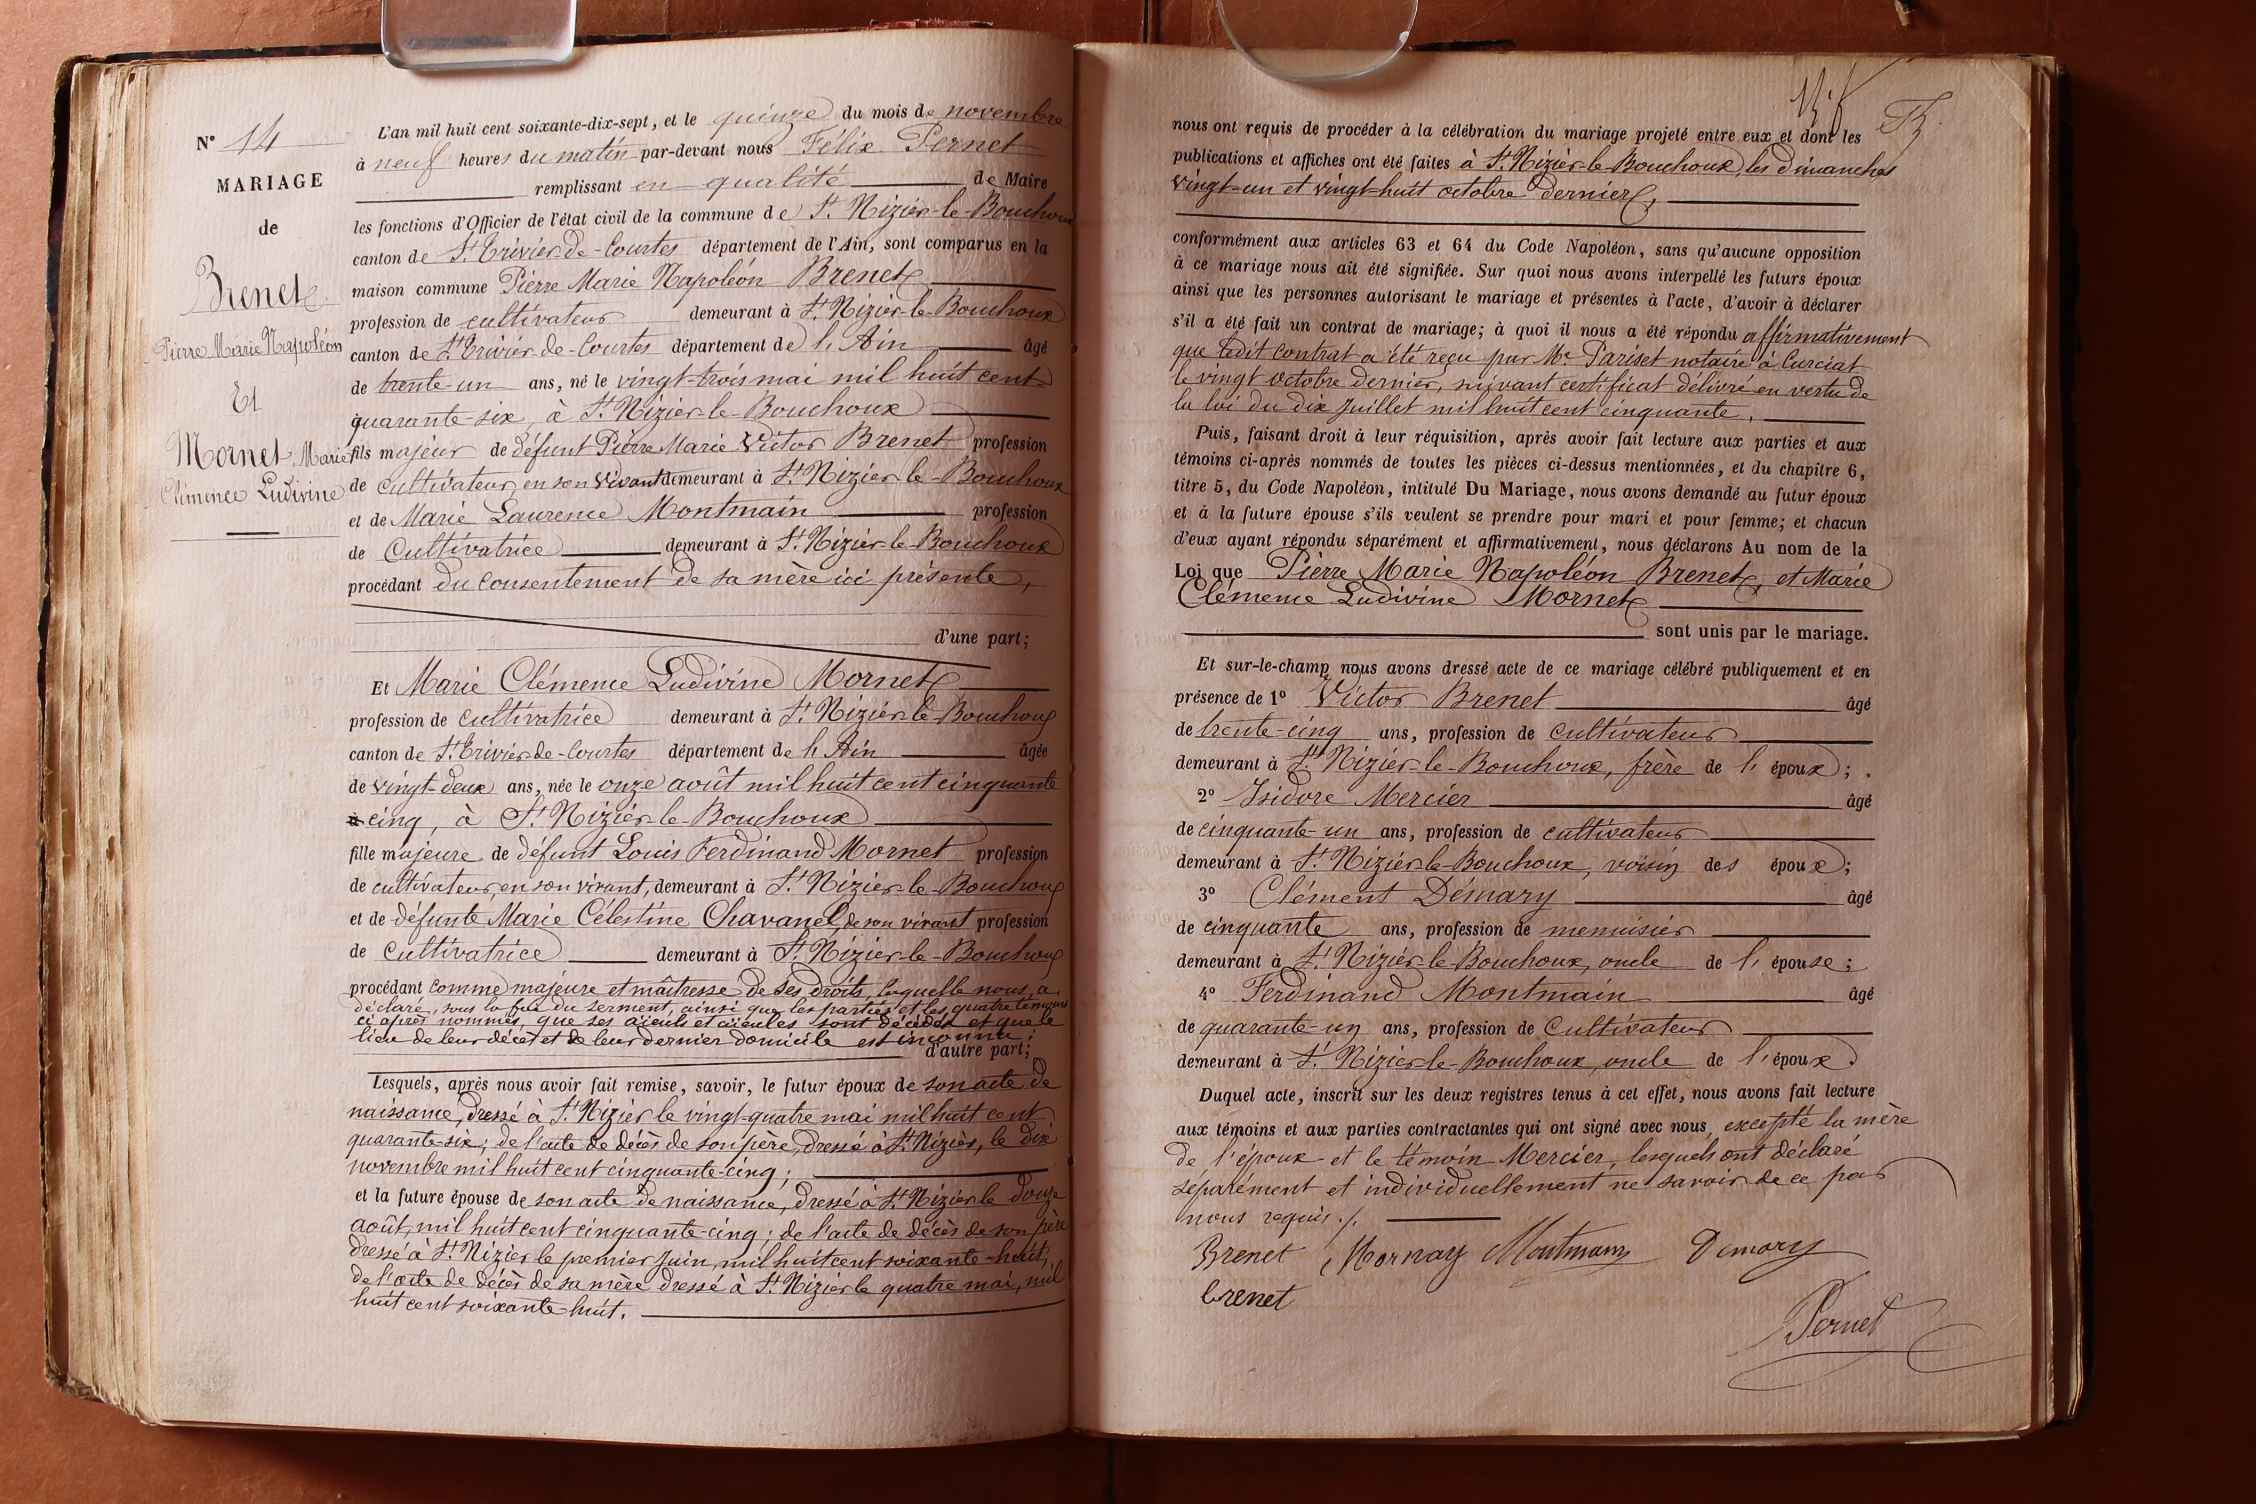 N° 14
MARIAGE
de
Brenet
Pierre Marie Napoléon
Et
Mornet Marie
Clémence Ludivine
L'an mil huit cent soixante-dix-sept, et le quinze du mois de novembre
à neuf heures du matin par-devant nous Félix Pernet
remplissant en qualité de Maire
les fonctions d'Officier de l'état civil de la commune de St Nizier-le-Bouchoux
canton de St Trivier-de-Courtes département de l'Ain, sont comparus en la
maison commune Pierre Marie Napoléon Brenet
profession de cultivateur demeurant à St Nizier-le-Bouchoux
canton de St Trivier-de-Courtes département de l'Ain âgé
de trente-un ans, né le vingt-trois mai mil huit cent
quarante-six, à St Nizier-le-Bouchoux
fils majeur de défunt Pierre Marie Victor Brenet profession
de cultivateur, en son vivant demeurant à St Nizier-le-Bouchoux
et de Marie Laurence Montmain profession
de Cultivatrice demeurant à St Nizier-le-Bouchoux
procédant du consentement de sa mère ici présente,
d'une part;
Et Marie Clémence Ludivine Mornet
profession de cultivatrice demeurant à St Nizier-le-Bouchoux
canton de St Trivier-de-Courtes département de l'Ain âgée
de vingt-deux ans, née le onze août mil huit cent cinquante
cinq, à St Nizier-le-Bouchoux
fille majeure de défunt Louis Ferdinand Mornet profession
de cultivateur, en son vivant, demeurant à St Nizier-le-Bouchoux
et de défunte Marie Célestine Chavanel, de son vivant profession
de cultivatrice demeurant à St Nizier-le-Bouchoux
procédant comme majeure et maîtresse de ses droits, laquelle nous a
déclaré, sous la foi du serment, ainsi que les parties et les quatre témoins
ci après nommés, que ses aïeuls et aïeules sont décédés et que le
lieu de leur décès et de leur dernier domicile est inconnu;
d'autre part;
Lesquels, après nous avoir fait remise, savoir, le futur époux de son acte de
naissance, dressé à St Nizier le vingt-quatre mai mil huit cent
quarante-six; de l'acte de décès de son père, dressé à St Nizier, le dix
novembre mil huit cent cinquante-cinq;
et la future épouse de son acte de naissance, dressé à St Nizier le douze
août, mil huit cent cinquante-cinq; de l'acte de décès de son père
dressé à St Nizier le premier Juin, mil huit cent soixante-huit,
de l'acte de décès de sa mère dressé à St Nizier le quatre mai, mil
huit cent soixante-huit.
nous ont requis de procéder à la célébration du mariage projeté entre eux et dont les
publications et affiches ont été faites à St Nizier-le-Bouchoux, les dimanches
vingt-un et vingt-huit octobre dernier,
conformément aux articles 63 et 64 du Code Napoléon, sans qu'aucune opposition
à ce mariage nous ait été signifiée. Sur quoi nous avons interpellé les futurs époux
ainsi que les personnes autorisant le mariage et présentes à l'acte, d'avoir à déclarer
s'il a été fait un contrat de mariage; à quoi il nous a été répondu affirmativement
que ledit contrat a été reçu par Me Pariset notaire à Curciat
le vingt octobre dernier, suivant certificat délivré en vertu de
la loi du dix Juillet mil huit cent cinquante,
Puis, faisant droit à leur réquisition, après avoir fait lecture aux parties et aux
témoins ci-après nommés de toutes les pièces ci-dessus mentionnées, et du chapitre 6,
titre 5, du Code Napoléon, intitulé Du Mariage, nous avons demandé au futur époux
et à la future épouse s'ils veulent se prendre pour mari et pour femme; et chacun
d'eux ayant répondu séparément et affirmativement, nous déclarons Au nom de la
Loi que Pierre Marie Napoléon Brenet, et Marie
Clémence Ludivine Mornet
sont unis par le mariage.
Et sur-le-champ nous avons dressé acte de ce mariage célébré publiquement et en
présence de 1° Victor Brenet âgé
de trente-cinq ans, profession de cultivateur
demeurant à St Nizier-le-Bouchoux, frère de l'époux;
2° Isidore Mercier âgé
de cinquante-un ans, profession de cultivateur
demeurant à St Nizier-le-Bouchoux, voisin des époux;
3° Clément Démary âgé
de cinquante ans, profession de menuisier
demeurant à St Nizier-le-Bouchoux, oncle de l'épouse;
4° Ferdinand Montmain âgé
de quarante-un ans, profession de Cultivateur
demeurant à St Nizier-le-Bouchoux, oncle de l'époux
Duquel acte, inscrit sur les deux registres tenus à cet effet, nous avons fait lecture
aux témoins et aux parties contractantes qui ont signé avec nous, excepté la mère
de l'époux et le témoin Mercier, lesquels ont déclaré
séparément et individuellement ne savoir de ce par
nous requis./.
Brenet Mornay Montmain Demory
brenet
Pernet